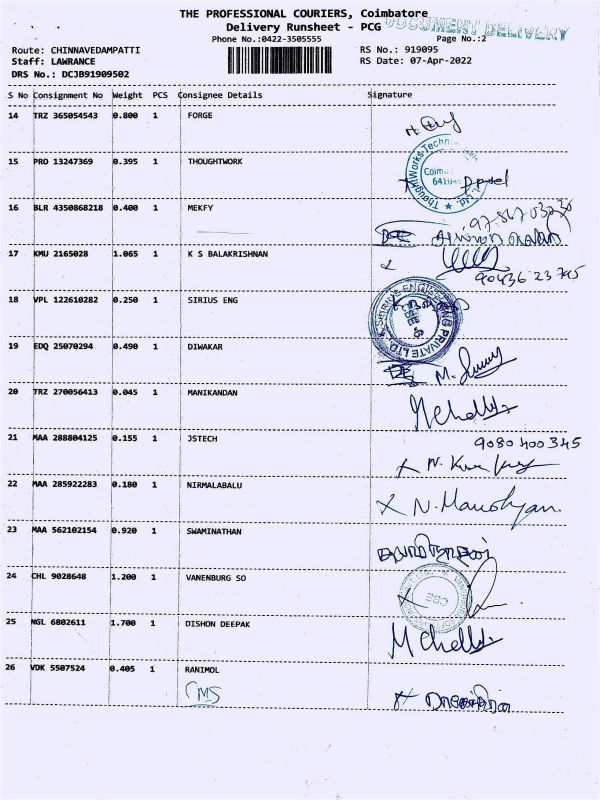 THE PROFESSIONAL COURIERS, Coimbatore
Delivery Runsheet - PCG
DOCUMENT DELIVERY
Phone No.:0422-3505555
Page No.:2
Route: CHINNAVEDAMPATTI
RS No.: 919095
Staff: LAWRANCE
RS Date: 07-Apr-2022
DRS No.: DCJB91909502
S No Consignment No Weight PCS Consignee Details Signature
14 TRZ 365054543 0.800 1 FORGE
15 PRO 13247369 0.395 1 THOUGHTWORK
ThoughtWorks Techn
Coim
Ltd.
16 BLR 4350868218 0.400 1 MEKFY
17 KMU 2165028 1.065 1 K S BALAKRISHNAN
90436 23745
18 VPL 122610282 0.250 1 SIRIUS ENG
ENGINEERING PRIVATE LTD.
19 EDQ 25070294 0.490 1 DIWAKAR
20 TRZ 270056413 0.045 1 MANIKANDAN
21 MAA 288804125 0.155 1 JSTECH
9080400345
22 MAA 285922283 0.180 1 NIRMALABALU
23 MAA 562102154 0.920 1 SWAMINATHAN
24 CHL 9028648 1.200 1 VANENBURG SO
CBE
25 NGL 6802611 1.700 1 DISHON DEEPAK
26 VDK 5507524 0.405 1 RANIMOL
CMS